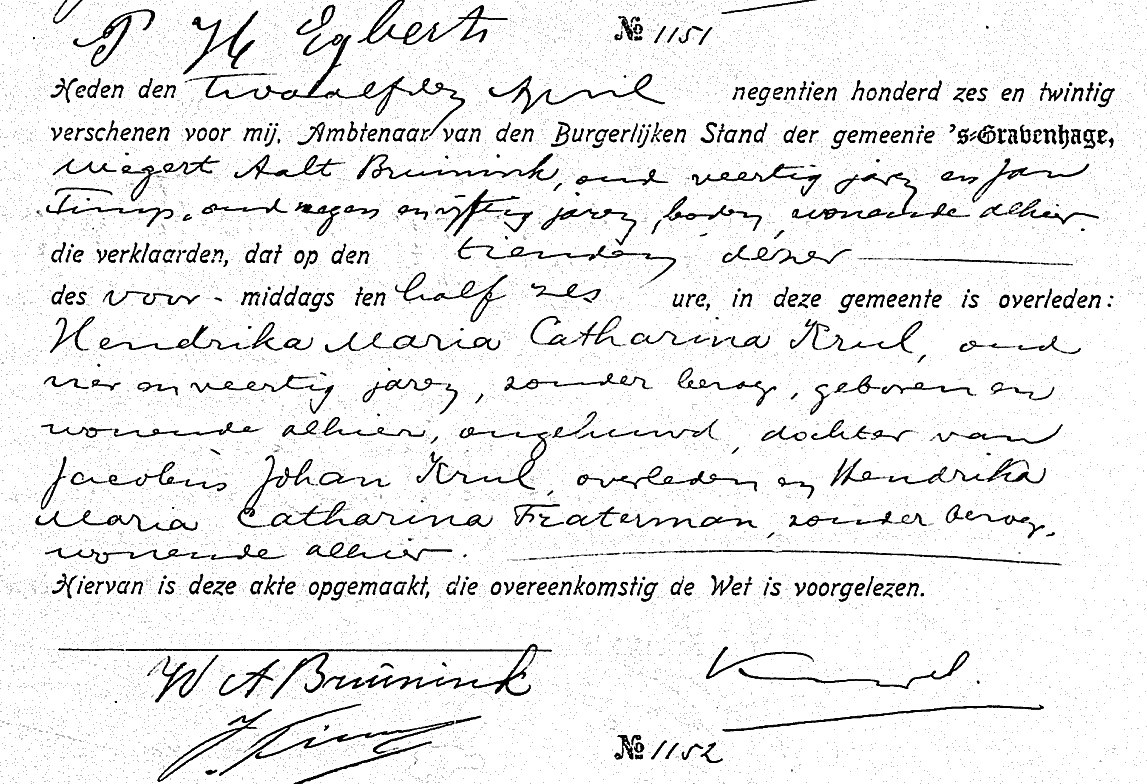 P H Egberts
№ 1151
Heden den twaalfden April negentien honderd zes en twintig
verschenen voor mij, Ambtenaar van den Burgerlijken Stand der gemeente 's-Gravenhage,
Wiegert Aalt Bruinink, oud veertig jaren en Jan
Timp, oud negen en vijftig jaren, boden, wonende alhier
die verklaarden, dat op den tienden dezer
des voor- middags ten half zes ure, in deze gemeente is overleden:
Hendrika Maria Catharina Krul, oud
vier en veertig jaren, zonder beroep, geboren en
wonende alhier, ongehuwd, dochter van
Jacobus Johan Krul, overleden en Hendrika
Maria Catharina Fraterman, zonder beroep,
wonende alhier.
Hiervan is deze akte opgemaakt, die overeenkomstig de Wet is voorgelezen.
W A Bruinink
J. Timp
№ 1152